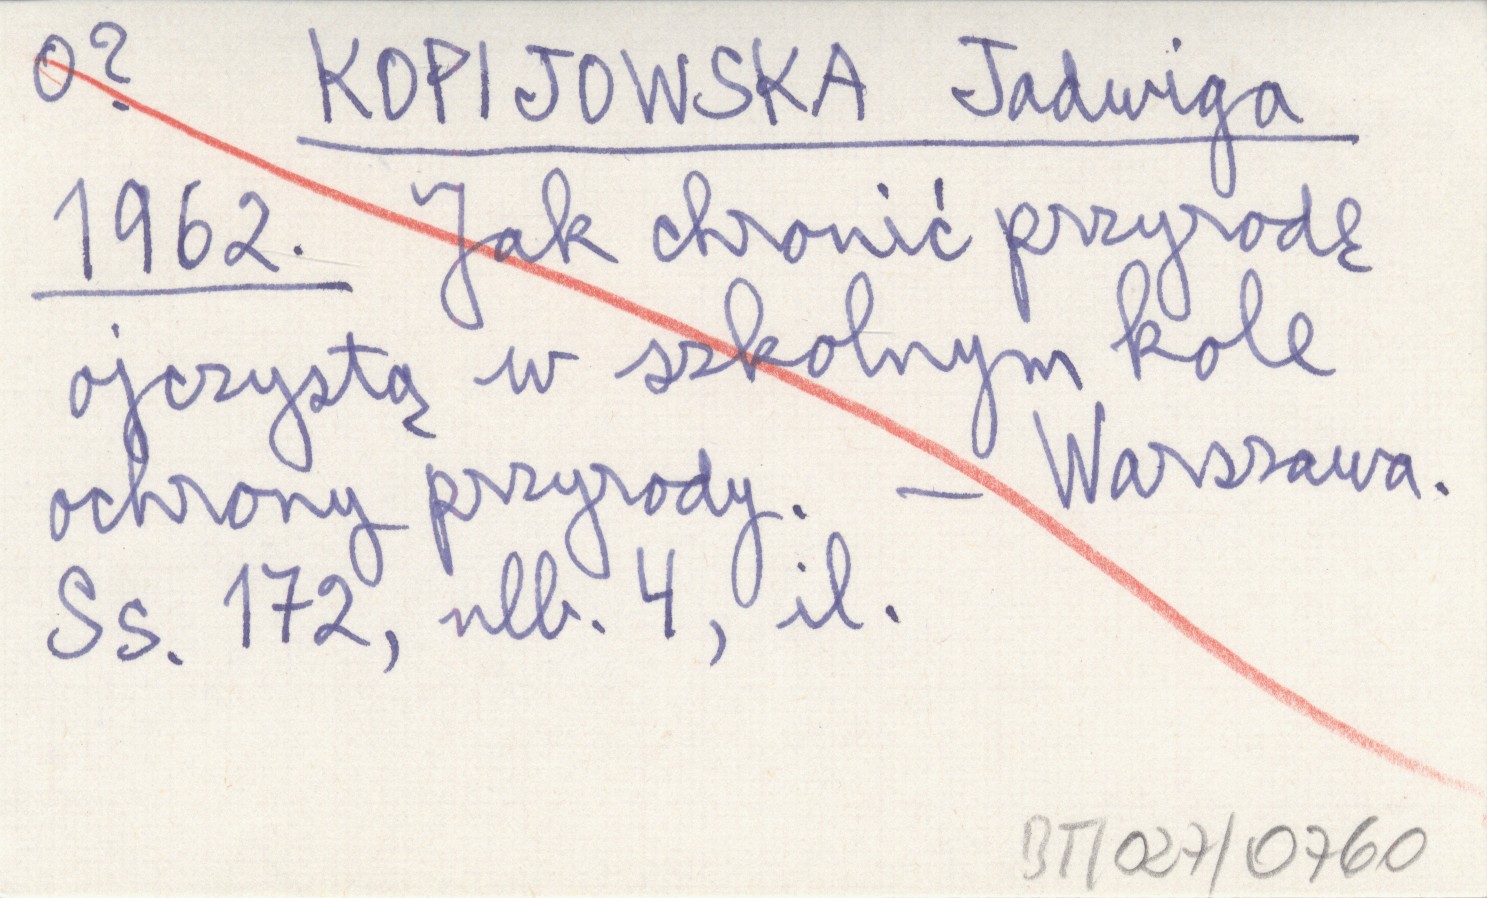 O? KOPIJOWSKA Jadwiga
1962. Jak chronić przyrodę
ojczystą w szkolnym kole
ochrony przyrody. — Warszawa.
Ss. 172, nlb. 4, il.
BTP/027/0760